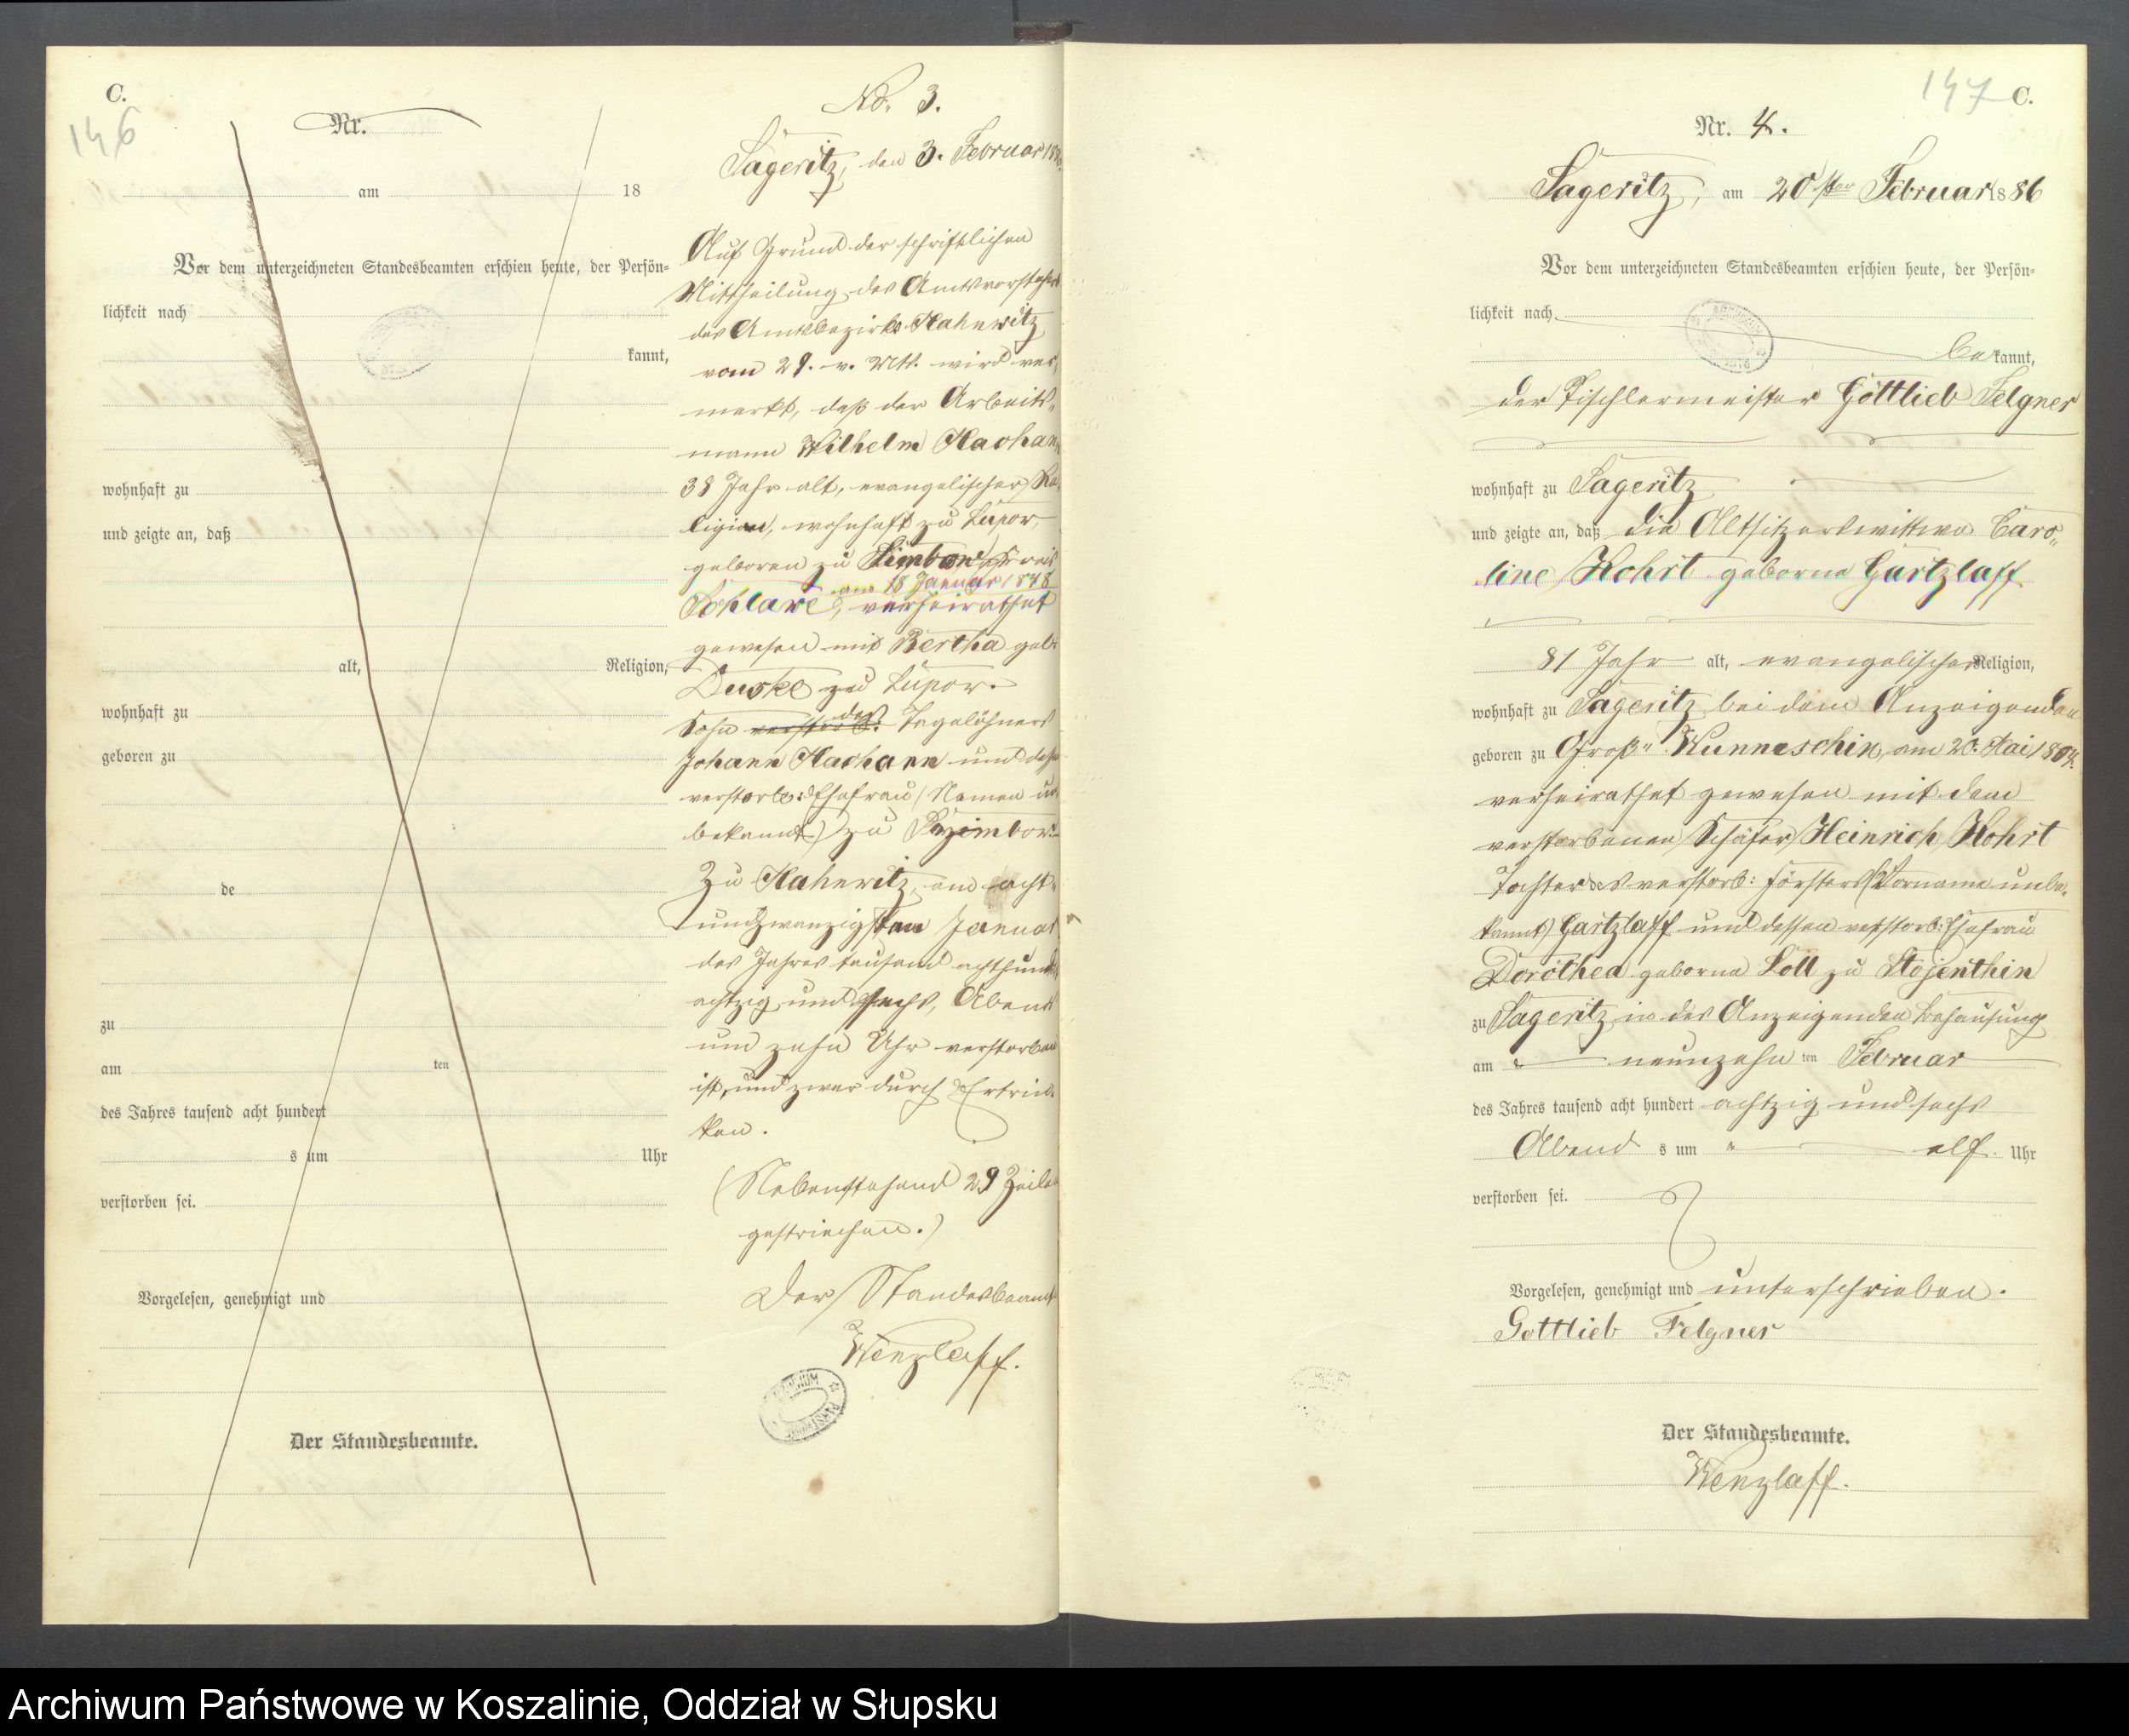 C.
146
Nr.
am 18
Vor dem unterzeichneten Standesbeamten erschien heute, der Persön-
lichkeit nach
kannt,
wohnhaft zu
und zeigte an, daß
alt, Religion,
wohnhaft zu
geboren zu
de
zu
am ten
des Jahres tausend acht hundert
s um Uhr
verstorben sei.
Vorgelesen, genehmigt und
Der Standesbeamte.
No. 3.
Sageritz, den 3. Februar 18
Auf Grund der schriftlichen
Mittheilung des Amtsvorstehers
des Amtsbezirks
vom 29. v. Mts. wird ver-
merkt, daß der Arbeits-
mann Wilhelm
38 Jahr alt, evangelischer Re-
ligion, wohnhaft zu Lupow,
geboren zu Kreis
am 18 Januar 1848
Schlawe, verheirathet
gewesen mit Bertha geb:
zu Lupow.
Sohn verstorb: des Tagelöhners
Johann und dess
verstorb: Ehefrau (Namen un
bekannt) zu
Zu am acht-
undzwanzigsten Januar
des Jahres tausend achthund
achtzig und sechs, Abends
um zehn Uhr verstorben
ist, und zwar durch Ertrin-
ken.
(Nebenstehend 29 Zeilen
gestrichen.)
Der Standesbeamte
Wenzlaff.
147 C.
Nr. 4.
Sageritz, am 20sten Februar 1886
Vor dem unterzeichneten Standesbeamten erschien heute, der Persön-
lichkeit nach
be kannt,
der Tischlermeister Gottlieb Felgner
wohnhaft zu Sageritz
und zeigte an, daß die Altsitzerwittwe Caro-
line Kohrt geborne Gartzlaff
81 Jahr alt, evangelischer Religion,
wohnhaft zu Sageritz bei dem Anzeigenden
geboren zu Groß- Wunneschin, am 20. Mai 1804.
verheirathet gewesen mit dem
verstorbenen Schäfer Heinrich Kohrt
Tochter des verstorb: Försters (Vorname unbe-
kannt) Gartzlaff und dessen verstorb: Ehefrau
Dorothea geborne Föll zu Stojenthin
zu Sageritz in des Anzeigenden Behausung
am neunzehn ten Februar
des Jahres tausend acht hundert achtzig und sechs
Abend s um elf Uhr
verstorben sei.
Vorgelesen, genehmigt und unterschrieben.
Gottlieb Felgner
Der Standesbeamte.
Wenzlaff.
Archiwum Państwowe w Koszalinie, Oddział w Słupsku